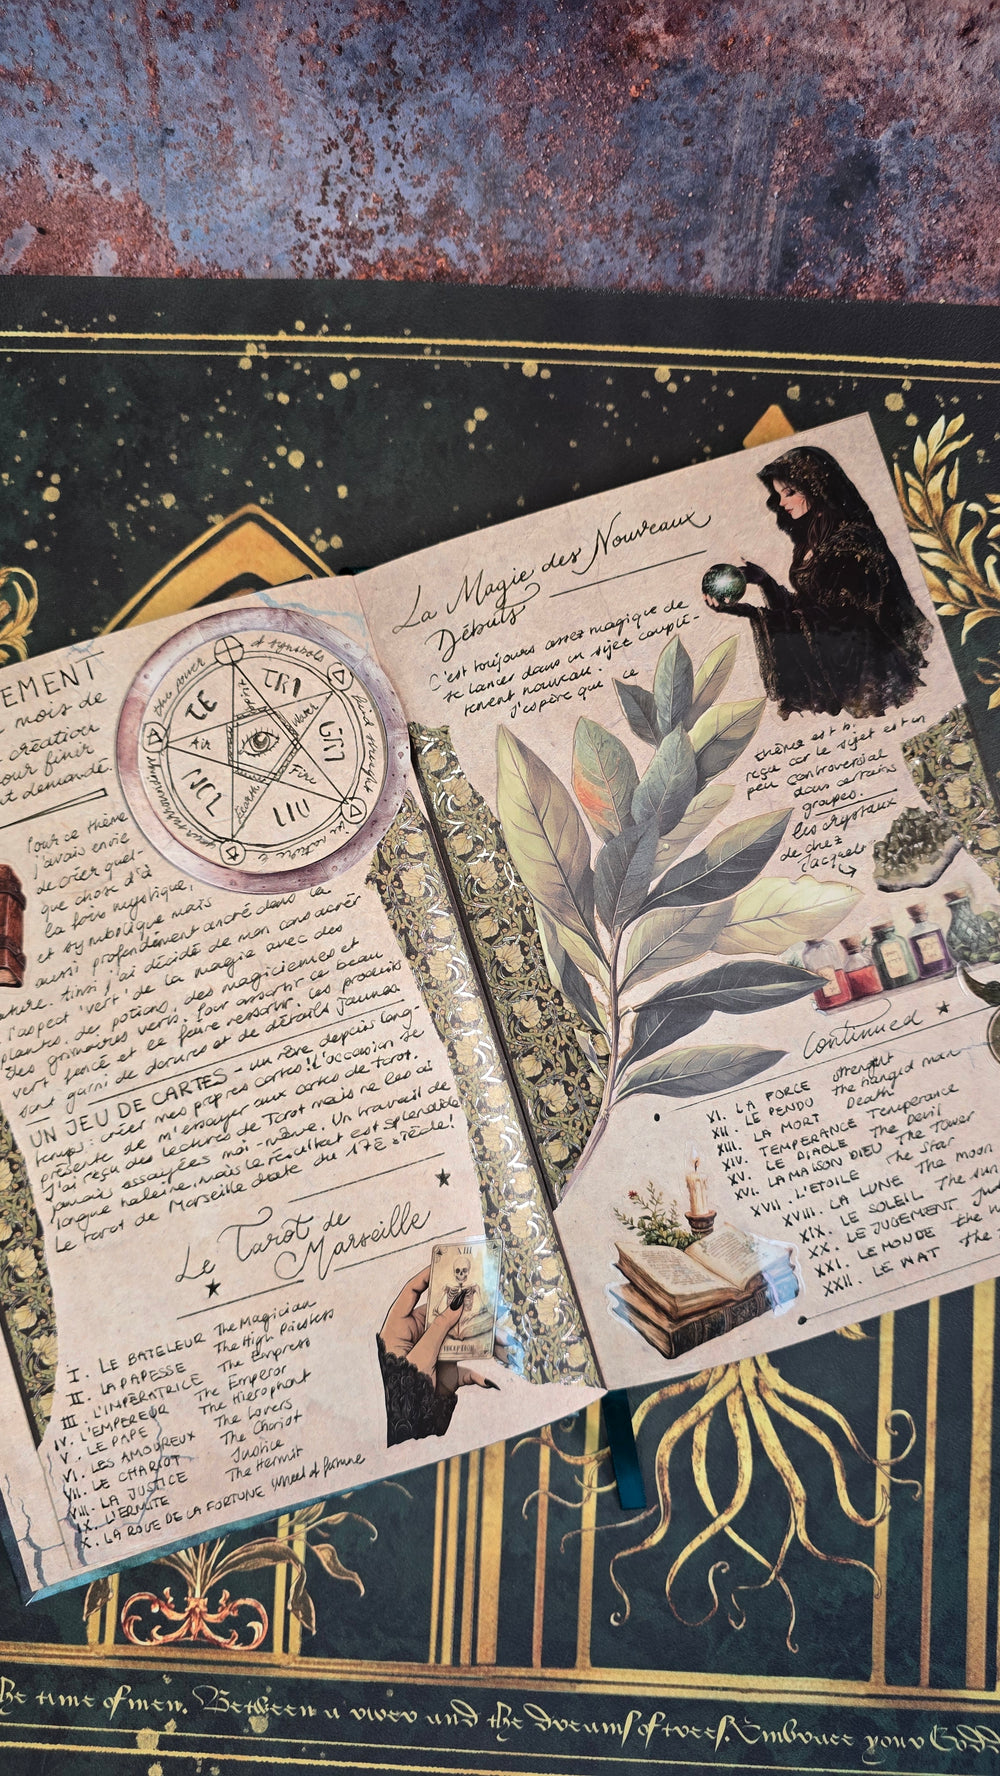 EMENT
mois de
création
our finir
t demandé.
Pour ce thème
j'avais envie
de créer quel-
que chose d'à
la fois mystique,
et symbolique mais
aussi profondément ancré dans la
ture. Ainsi j'ai décidé de m'en consacrer
l'aspect 'vert' de la magie avec des
plantes, de potions, des magiciennes et
des grimoires verts. Pour assortir ce beau
vert foncé et le faire ressortir, les produits
sont garni de dorures et de détails jaunes.
UN JEU DE CARTES - un rêve depuis long-
temps: créer mes propres cartes! L'occasion se
présente de m'essayer aux cartes de Tarot.
J'ai reçu des lectures de Tarot mais ne les ai
jamais essayées moi-même. Un travail de
longue haleine, mais le résultat est splendide
Le tarot de Marseille date du 17è siècle!
Le Tarot de
Marseille
I. LE BATELEUR The Magician
II. LA PAPESSE The High Priestess
III. L'IMPÉRATRICE The Empress
IV. L'EMPEREUR The Emperor
V. LE PAPE The Hierophant
VI. LES AMOUREUX The Lovers
VII. LE CHARIOT The Chariot
VIII. LA JUSTICE Justice
IX. L'ERMITE The Hermit
X. LA ROUE DE LA FORTUNE Wheel of fortune
the power
of symbols
Air
Water
Fire
Earth
XIII
La Magie des Nouveaux
Débuts
C'est toujours assez magique de
se lancer dans un sujet complè-
tement nouveau.
J'espère que ce
thème est bi
reçu car le sujet est un
peu controversial
dans certains
groupes.
les crystaux
de chez
Jacquels
Continued
XI. LA FORCE Strenght
XII. LE PENDU The hanged man
XIII. LA MORT Death
XIV. TEMPERANCE Temperance
XV. LE DIABLE The Devil
XVI. LA MAISON DIEU The Tower
XVII. L'ETOILE The Star
XVIII. LA LUNE The moon
XIX. LE SOLEIL The sun
XX. LE JUGEMENT Jud
XXI. LE MONDE the w
XXII. LE MAT the
he time of men. Between a river and the dreams of trees. Embrace your Godd